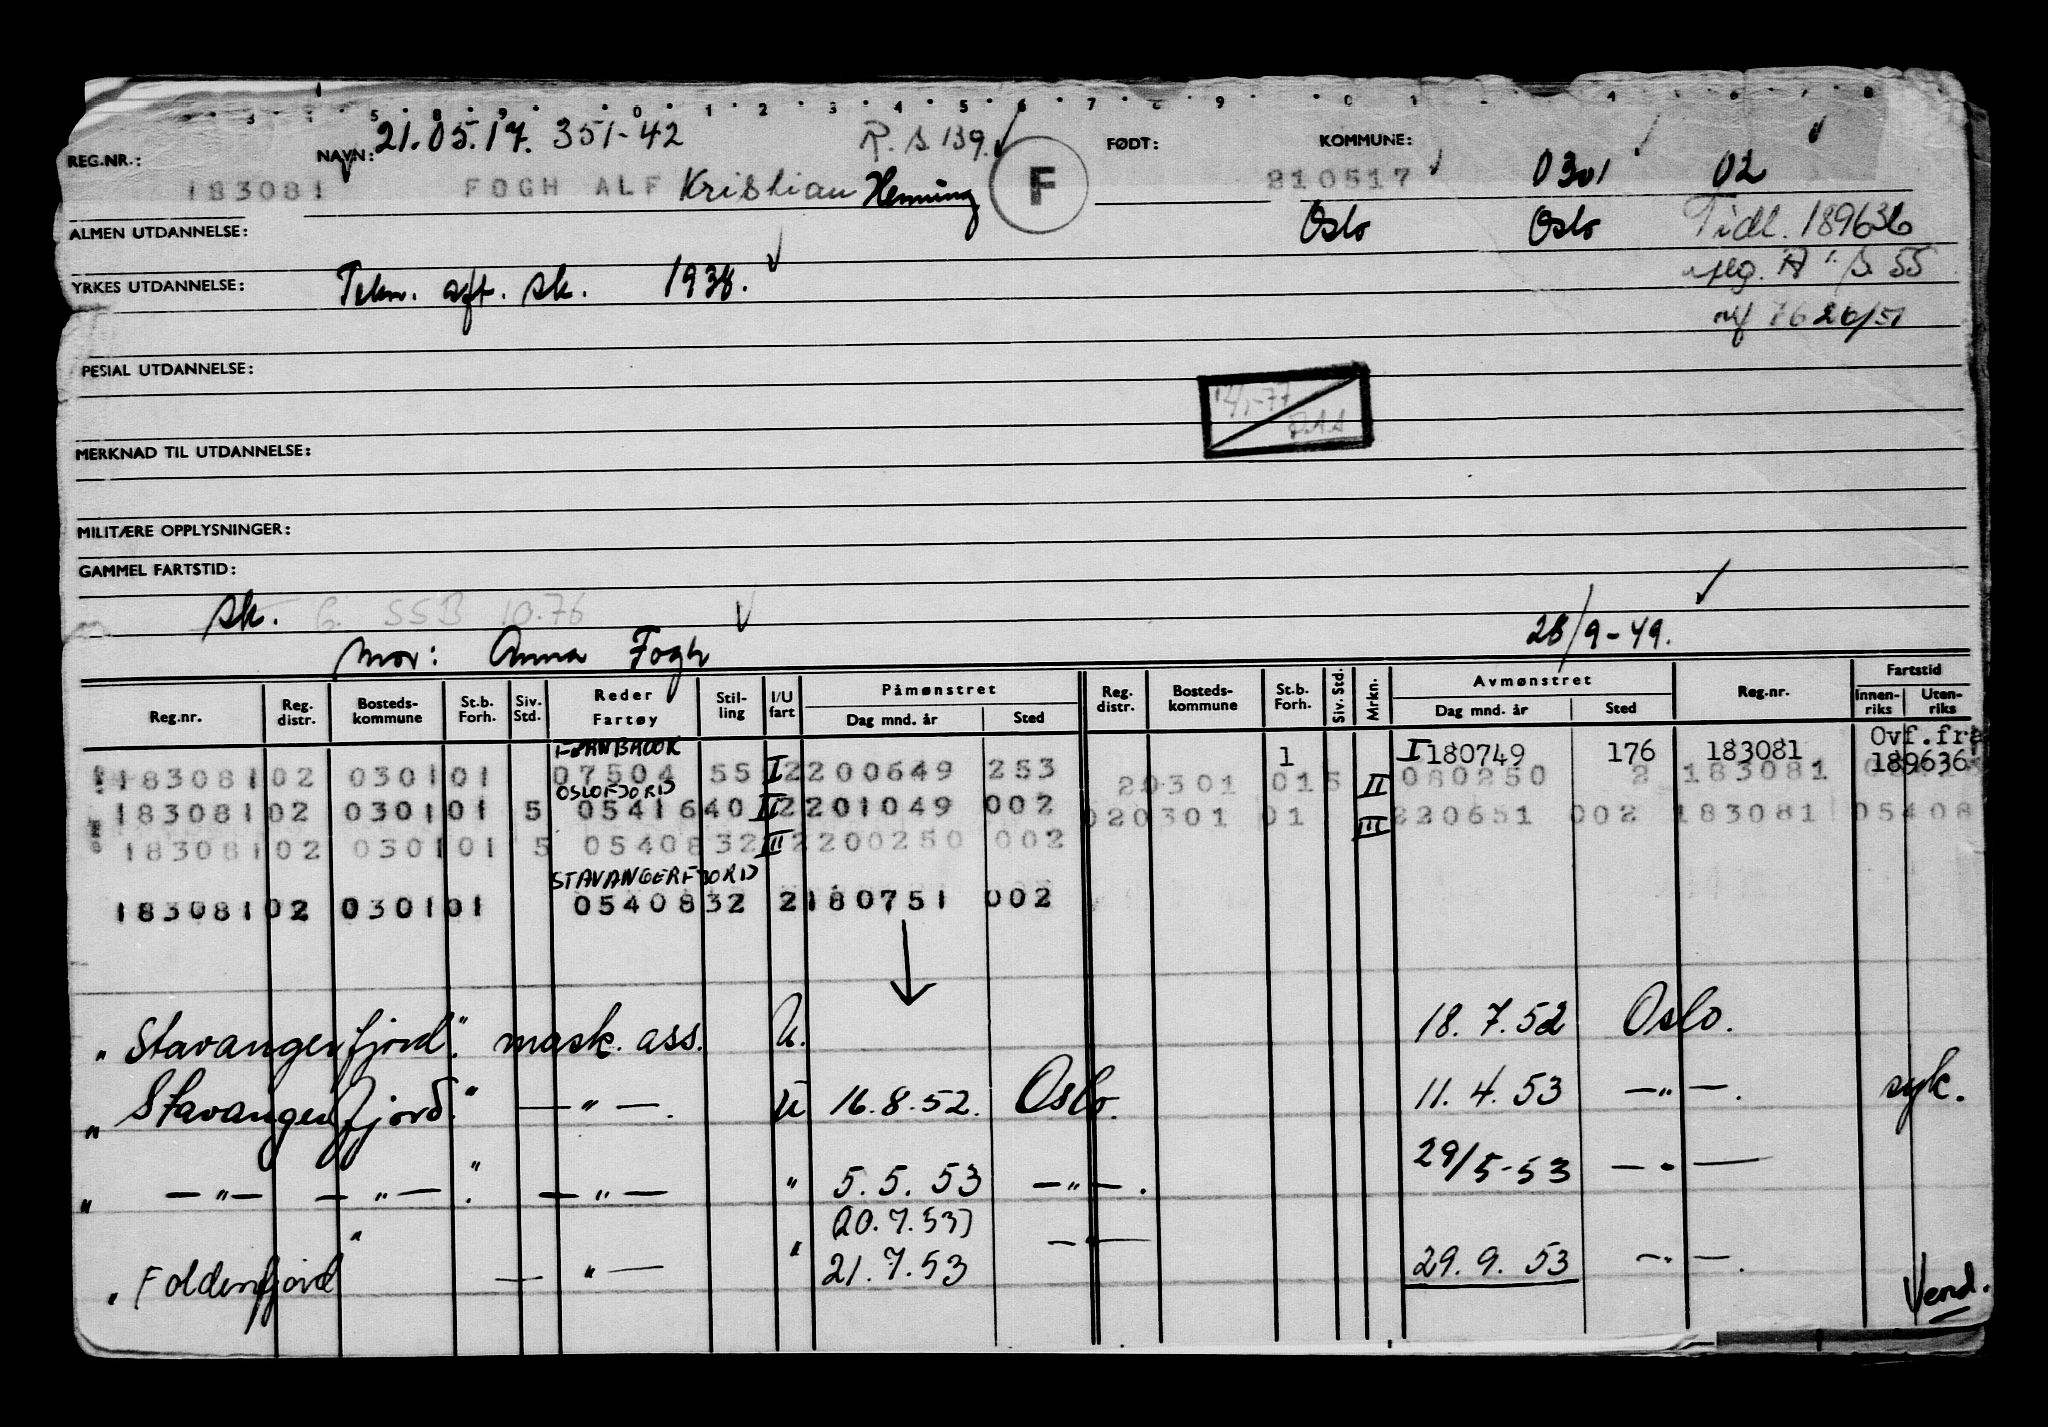 21.05.17. 351-42 R. S 139.
REG.NR.: NAVN: FØDT: KOMMUNE:
183081 FOGH ALF Kristian Henning F 210517 0301 02
ALMEN UTDANNELSE: Oslo Oslo Tidl. 189636
YRKES UTDANNELSE: Tekn. aft. sk. 1938.
20/51
PESIAL UTDANNELSE:
MERKNAD TIL UTDANNELSE:
MILITÆRE OPPLYSNINGER:
GAMMEL FARTSTID:
sk. G. SSB 10.76
mor: Anna Fogh 28/9-49.
Reg.nr. Reg. distr. Bosteds-kommune St.b. Forh. Siv. Std. Reder Fartøy Stil-ling I/U fart Påmønstret Dag mnd. år Sted Reg. distr. Bosteds-kommune St.b. Forh. Siv. Std. Mrkn. Avmønstret Dag mnd. år Sted Reg.nr. Fartstid Innen-riks Uten-riks
FERNBROOK 1 I 180749 176 183081 Ovf.fra 189636
183081 02 0301 01 07504 55 I 2 200649 253 20301 01 5 II 080250 2 183081
OSLOFJORD
183081 02 0301 01 5 05416 40 II 2 201049 002 020301 01 III 220651 002 183081 05408
183081 02 0301 01 5 05408 32 III 2 200250 002
STAVANGERFJORD
183081 02 0301 01 05408 32 2 180751 002
"Stavangerfjord" mask. ass. U. 18. 7. 52 Oslo.
"Stavangerfjord" — " —. U 16. 8. 52. Oslo. 11. 4. 53 — " —. syk.
" — " — — " — ." — " — " 5. 5. 53 — " —. 29/5-53 — " —
(20. 7. 53)
"Foldenfjord" — " — " 21. 7. 53 — " — 29. 9. 53 — " —. Vend.